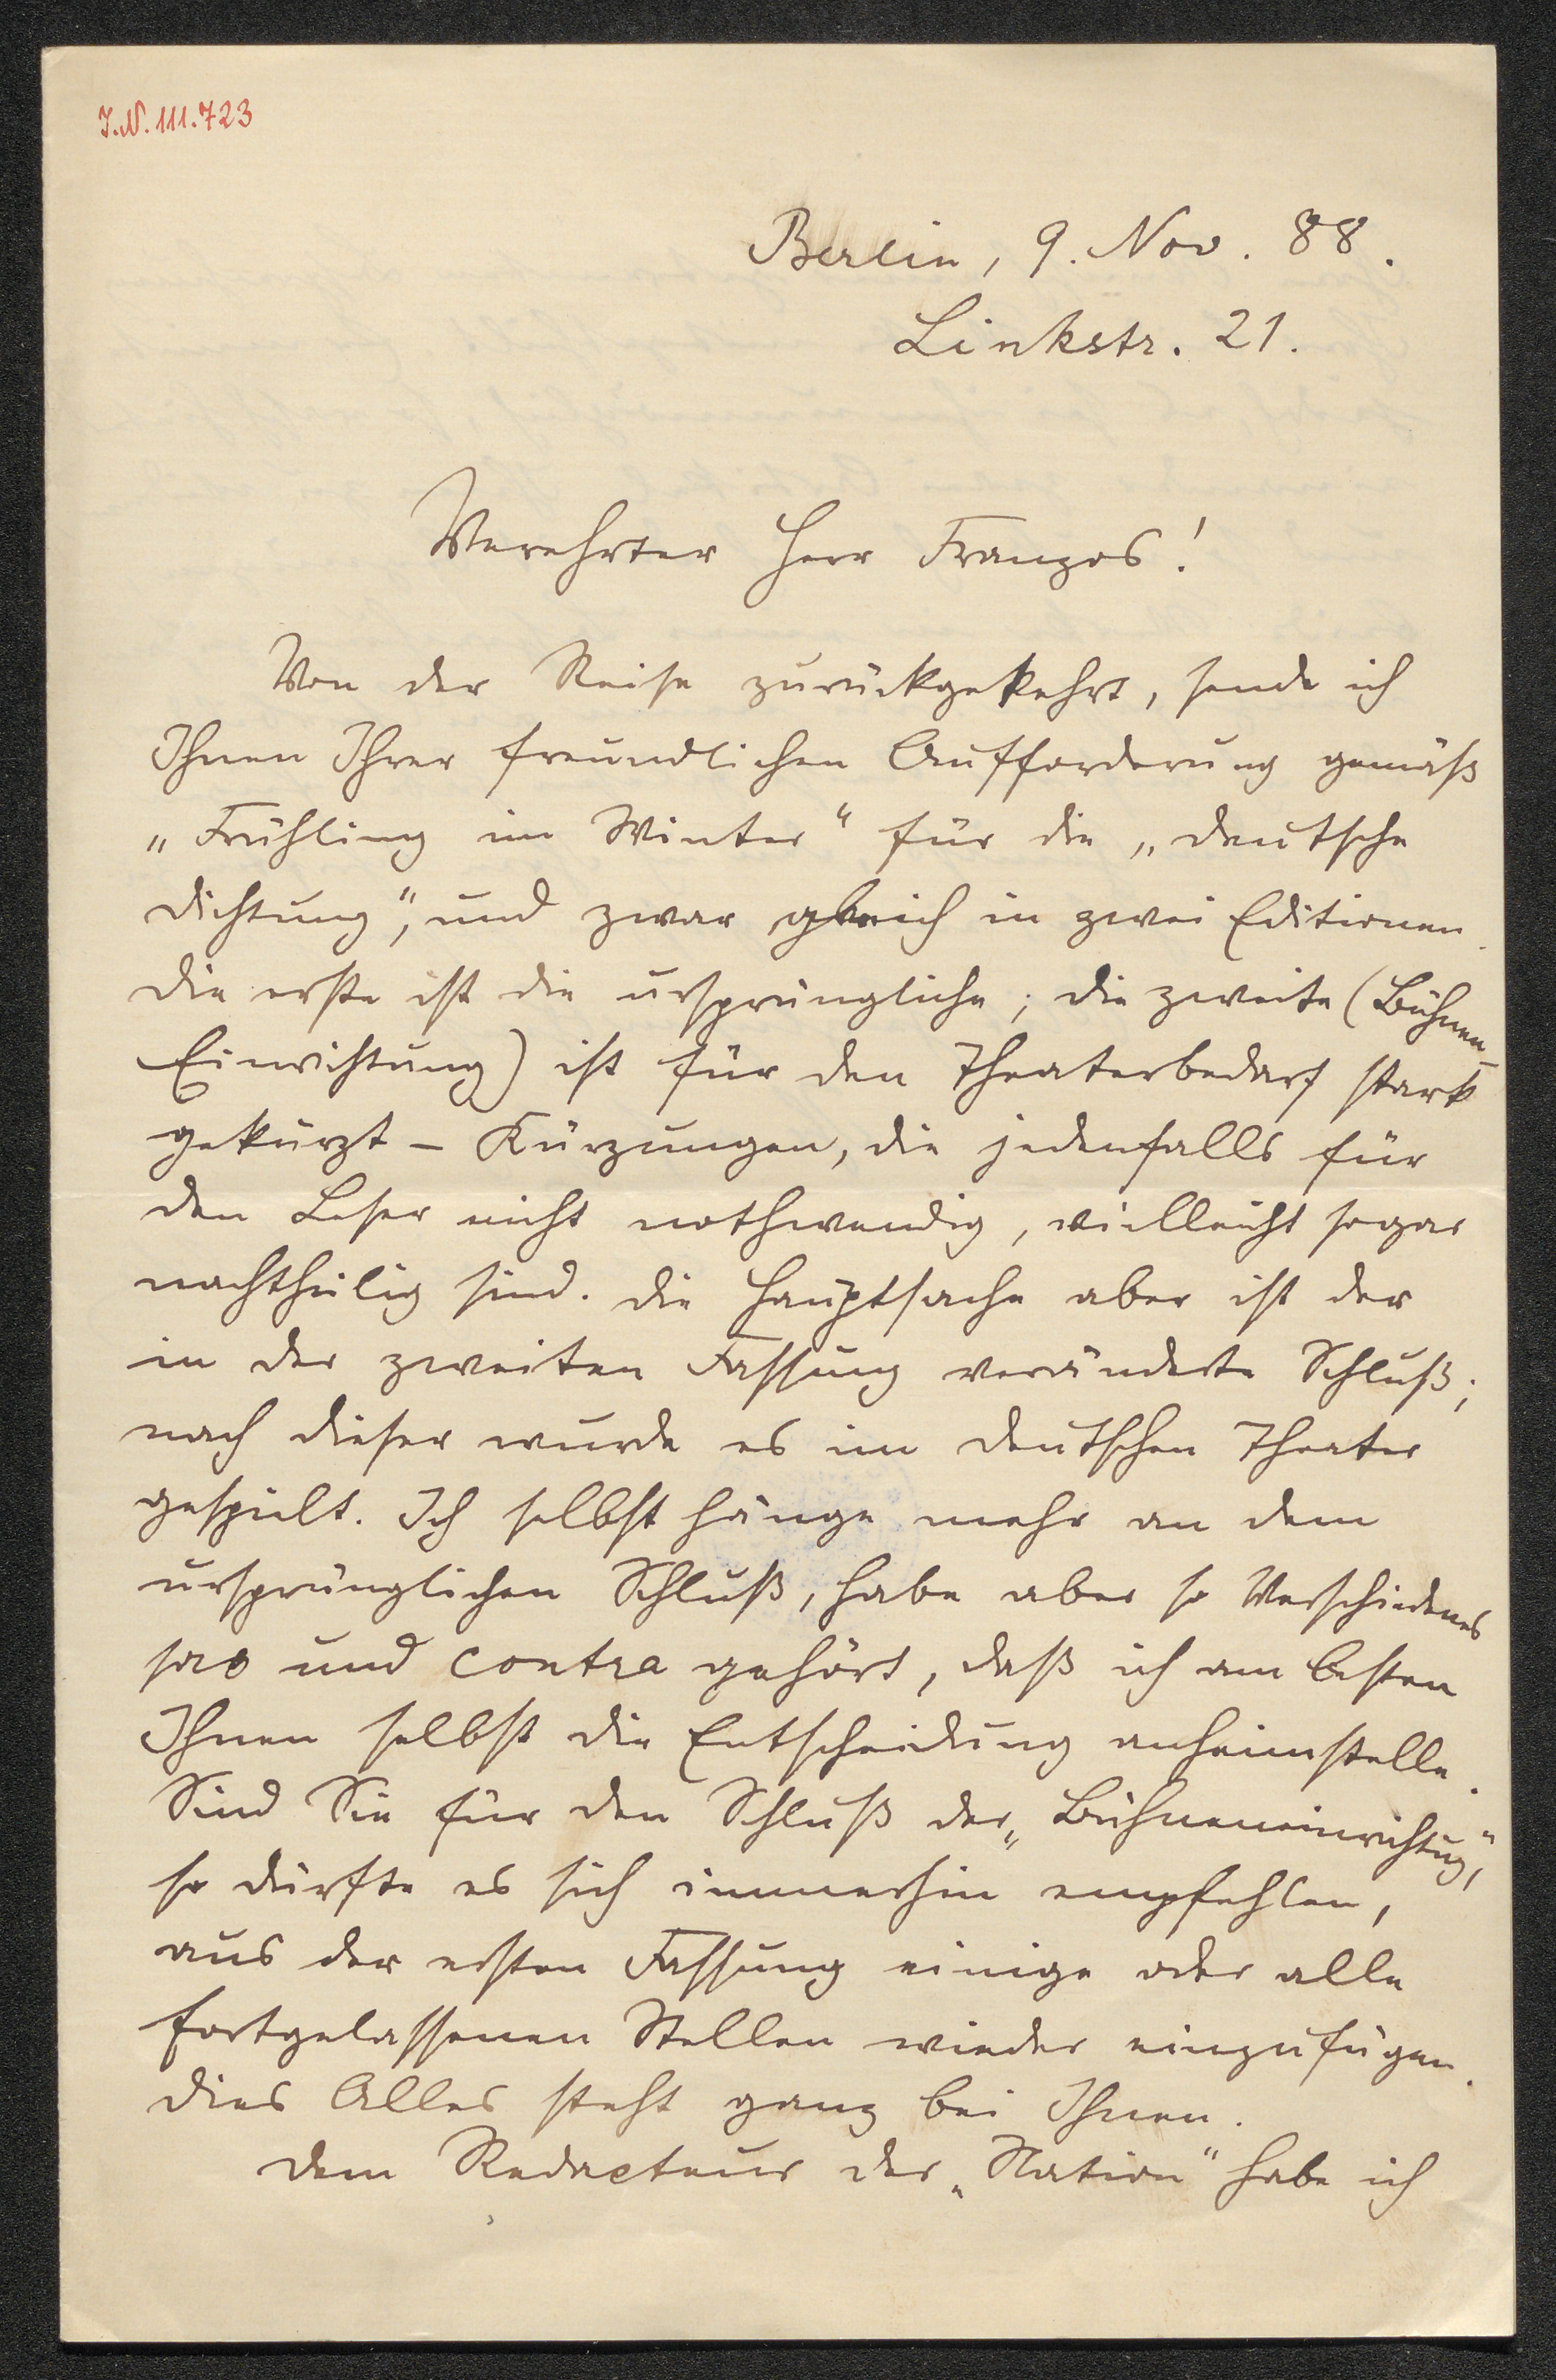 I.N. 111.723
Berlin, 9. Nov. 88.
Linkstr. 21.
Verehrter Herr Franzos!
Von der Reise zurückgekehrt, sende ich
Ihnen Ihrer freundlichen Aufforderung gemäß
„Frühling im Winter“ für die „Deutsche
Dichtung“, und zwar gleich in zwei Editionen.
Die erste ist die ursprüngliche; die zweite (Bühnen-
Einrichtung) ist für den Theaterbedarf stark
gekürzt – Kürzungen, die jedenfalls für
den Leser nicht nothwendig, vielleicht sogar
nachtheilig sind. Die Hauptsache aber ist der
in der zweiten Fassung veränderte Schluß;
nach dieser wurde es im Deutschen Theater
gespielt. Ich selbst hänge mehr an dem
ursprünglichen Schluß, habe aber so Verschiedenes
pro und contra gehört, daß ich am besten
Ihnen selbst die Entscheidung anheimstelle.
Sind Sie für den Schluß der „Bühneneinrichtug“,
so dürfte es sich immerhin empfehlen,
aus der ersten Fassung einige oder alle
fortgelassenen Stellen wieder einzufügen.
Dies Alles steht ganz bei Ihnen.
Dem Redacteur der „Nation“ habe ich